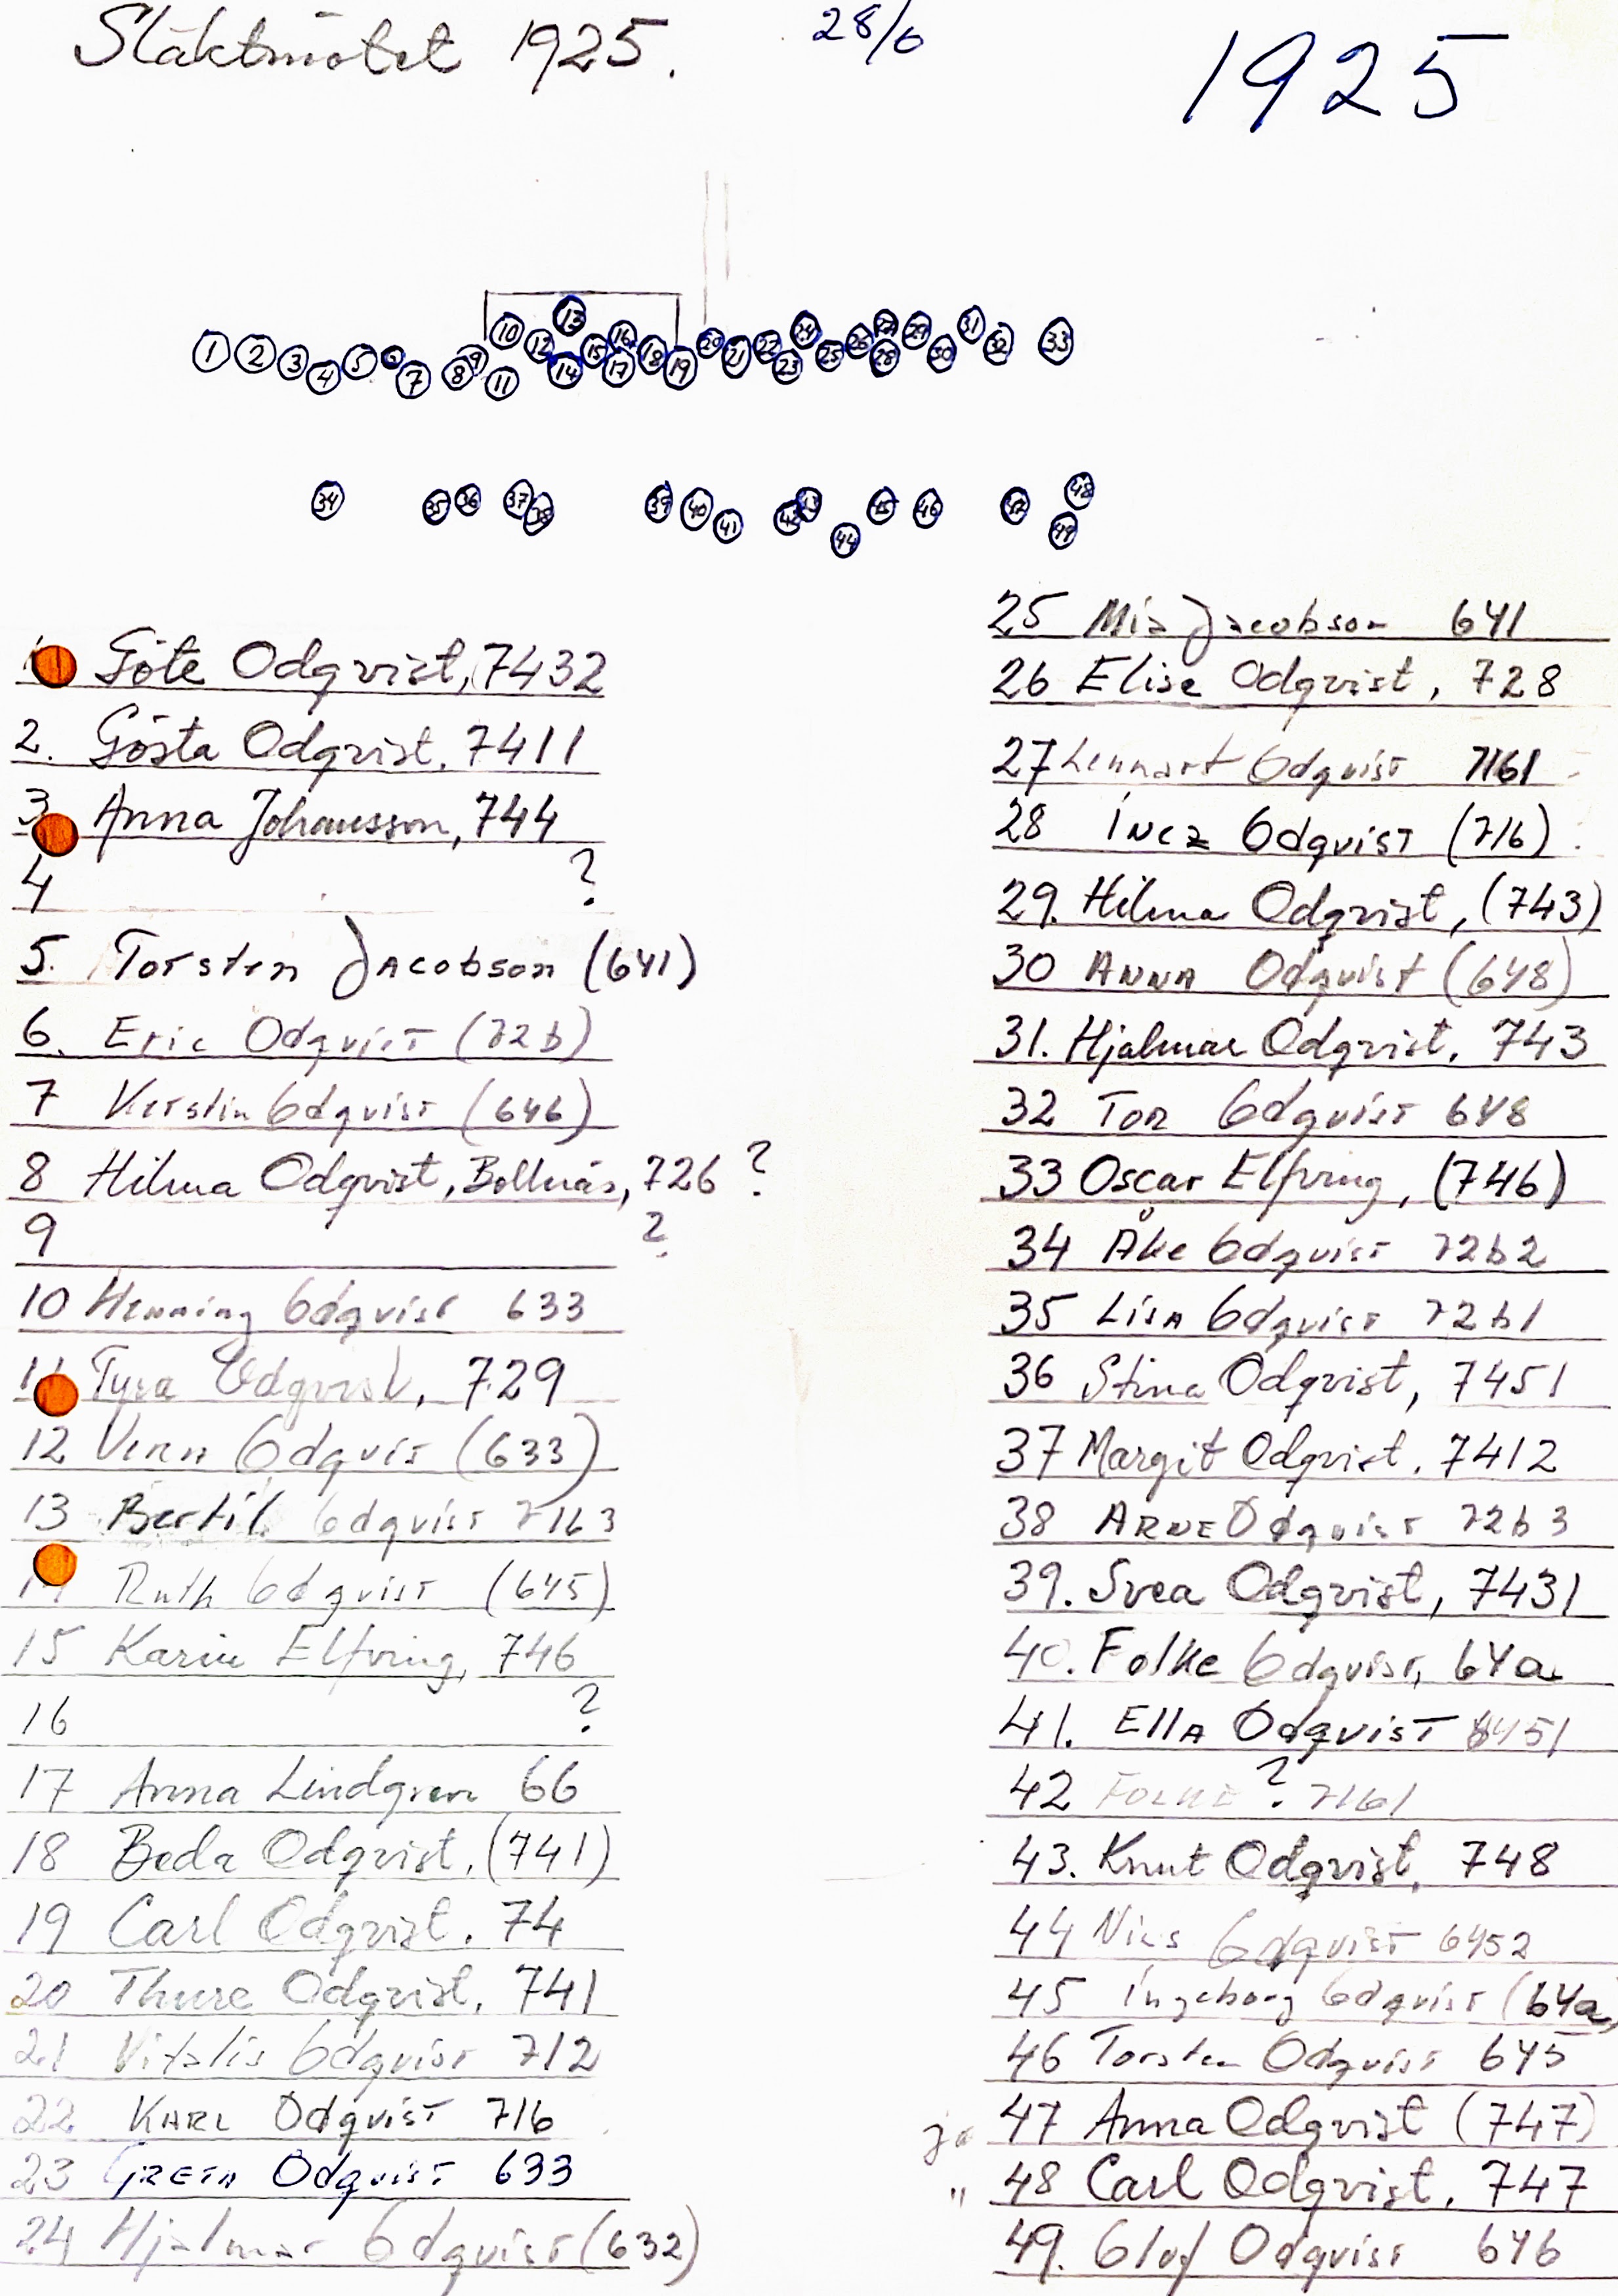 Släktmötet 1925. 28/6 1925
1 2 3 4 5 6 7 8 9 10 11 12 13 14 15 16 17 18 19 20 21 22 23 24 25 26 27 28 29 30 31 32 33
34 35 36 37 38 39 40 41 42 43 44 45 46 47 48 49
1 Göte Odqvist, 7432
2. Gösta Odqvist, 7411
3 Anna Johansson, 744
4 ?
5. Torsten Jacobson (641)
6. Eric Odqvist (72b)
7 Kerstin Odqvist (646)
8 Hilma Odqvist, Bollnäs, 726 ?
9 ?
10 Henning Odqvist 633
11 Tyra Odqvist, 729
12 Vera Odqvis (633)
13 Bertil Odqvist 7163
14 Ruth Odqvist (645)
15 Karin Elfving, 746
16 ?
17 Anna Lindgren 66
18 Beda Odqvist, (741)
19 Carl Odqvist, 74
20 Thure Odqvist, 741
21 Vitalis Odqvist 712
22 Karl Odqvist 716
23 Greta Odqvist 633
24 Hjalmar Odqvist (632)
25 Mia Jacobson 641
26 Elise Odqvist, 728
27 Lennart Odqvist 7161
28 Inez Odqvist (716)
29. Hilma Odqvist, (743)
30 Anna Odqvist (648)
31. Hjalmar Odqvist, 743
32 Tor Odqvist 648
33 Oscar Elfving, (746)
34 Åke Odqvist 72b2
35 Lisa Odqvist 72b1
36 Stina Odqvist, 7451
37 Margit Odqvist, 7412
38 Arne Odqvist 72b3
39. Svea Odqvist, 7431
40. Folke Odqvist, 64a
41. Ella Odqvist 6451
42 Folke ? 7161
43. Knut Odqvist, 748
44 Nils Odqvist 6452
45 Ingeborg Odqvist (64a)
46 Torsten Odqvist 645
ja 47 Anna Odqvist (747)
" 48 Carl Odqvist, 747
49. Olof Odqvist 646